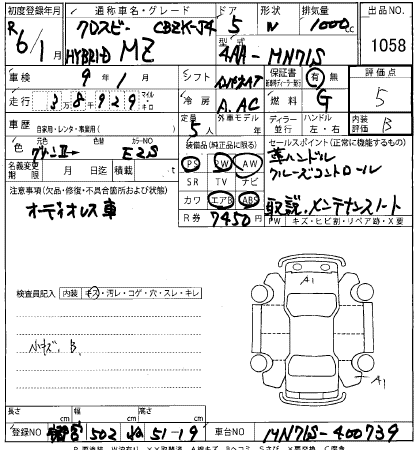 初度登録年月 通称車名・グレード ドア 形状 排気量 出品NO
R6/1月 クロスビー CBZK-J4 5 W 1000cc 1058
HYBRID MZ 型式 4AA-MN71S
車検 9年1月 シフト 保証書 有 無 評価点
走行 38929 マイル・キロ 冷房 A.AC 燃料 G 5
車歴 自家用・レンタ・事業用( ) 定員 5人 外車モデル ディーラー・並行 ハンドル 左・右 内装 B
色 元色 グリーンII→ カラーNO EZS 装備品(純正品に限る) セールスポイント(正常に機能するもの)
名義変更期限 月 日迄 積載 t PS PW AW 革ハンドル
注意事項(欠品・修復・不具合箇所および状態) SR TV ナビ クルーズコントロール
オーディオレス車 カワ エアB ABS 取説、メンテナンスノート
R券 7450円 PW キズ・ヒビ割・リペア跡・X要
検査員記入 内装 キズ・汚レ・コゲ・穴・スレ・キレ
小キズ、B A1
A1
長さ cm 幅 cm 高さ cm
登録NO 502 51-19 車台NO MN71S-400739